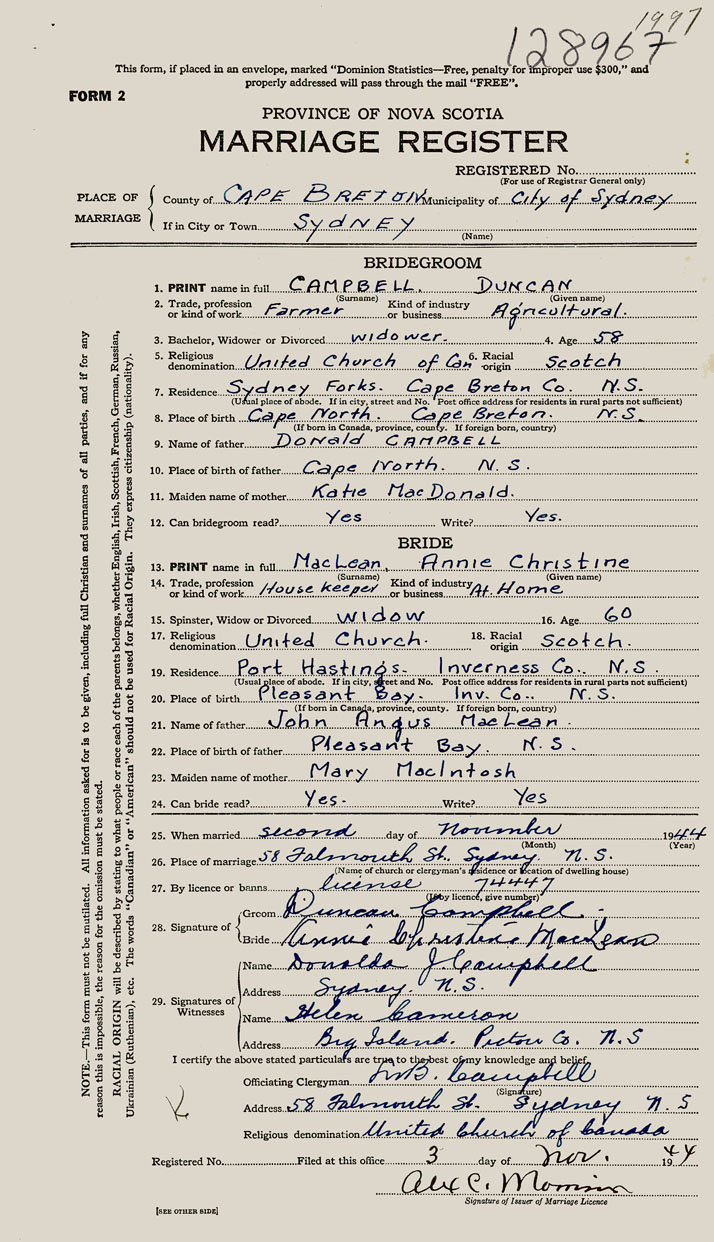 1997
128967
This form, if placed in an envelope, marked "Dominion Statistics—Free, penalty for improper use $300," and
properly addressed will pass through the mail "FREE".
FORM 2
PROVINCE OF NOVA SCOTIA
MARRIAGE REGISTER
REGISTERED No.
(For use of Registrar General only)
PLACE OF MARRIAGE
County of CAPE BRETON Municipality of City of Sydney
If in City or Town SYDNEY
(Name)
BRIDEGROOM
1. PRINT name in full CAMPBELL. DUNCAN
(Surname) (Given name)
2. Trade, profession or kind of work Farmer Kind of industry or business Agricultural.
3. Bachelor, Widower or Divorced widower. 4. Age 58
5. Religious denomination United Church of Can 6. Racial origin Scotch
7. Residence Sydney Forks. Cape Breton Co. N.S.
(Usual place of abode. If in city, street and No. Post office address for residents in rural parts not sufficient)
8. Place of birth Cape North. Cape Breton. N.S.
(If born in Canada, province, county. If foreign born, country)
9. Name of father DONALD CAMPBELL
10. Place of birth of father Cape North. N.S.
11. Maiden name of mother Katie MacDonald.
12. Can bridegroom read? Yes Write? Yes.
BRIDE
13. PRINT name in full MacLean, Annie Christine
(Surname) (Given name)
14. Trade, profession or kind of work House keeper Kind of industry or business At Home
15. Spinster, Widow or Divorced widow 16. Age 60
17. Religious denomination United Church. 18. Racial origin Scotch.
19. Residence Port Hastings. Inverness Co., N.S.
(Usual place of abode. If in city, street and No. Post office address for residents in rural parts not sufficient)
20. Place of birth Pleasant Bay. Inv. Co., N.S.
(If born in Canada, province, county. If foreign born, country)
21. Name of father John Angus MacLean.
22. Place of birth of father Pleasant Bay. N.S.
23. Maiden name of mother Mary MacIntosh
24. Can bride read? Yes. Write? Yes
25. When married second day of November 1944
(Month) (Year)
26. Place of marriage 58 Falmouth St. Sydney. N.S.
(Name of church or clergyman's residence or location of dwelling house)
27. By licence or banns license 74447
(If by licence, give number)
28. Signature of
Groom Duncan Campbell.
Bride Annie Christine MacLean
29. Signatures of Witnesses
Name Donalda J. Campbell
Address Sydney. N.S.
Name Helen Cameron
Address Big Island. Pictou Co. N.S
I certify the above stated particulars are true to the best of my knowledge and belief.
Officiating Clergyman Campbell
(Signature)
Address 58 Falmouth St. Sydney N.S
Religious denomination United Church of Canada
Registered No. Filed at this office 3 day of Nov. 1944
Alex C.
Signature of Issuer of Marriage Licence
[SEE OTHER SIDE]
NOTE.—This form must not be mutilated. All information asked for is to be given, including full Christian and surnames of all parties, and if for any
reason this is impossible, the reason for the omission must be stated.
RACIAL ORIGIN will be described by stating to what people or race each of the parents belongs, whether English, Irish, Scottish, French, German, Russian,
Ukrainian (Ruthenian), etc. The words "Canadian" or "American" should not be used for Racial Origin. They express citizenship (nationality).